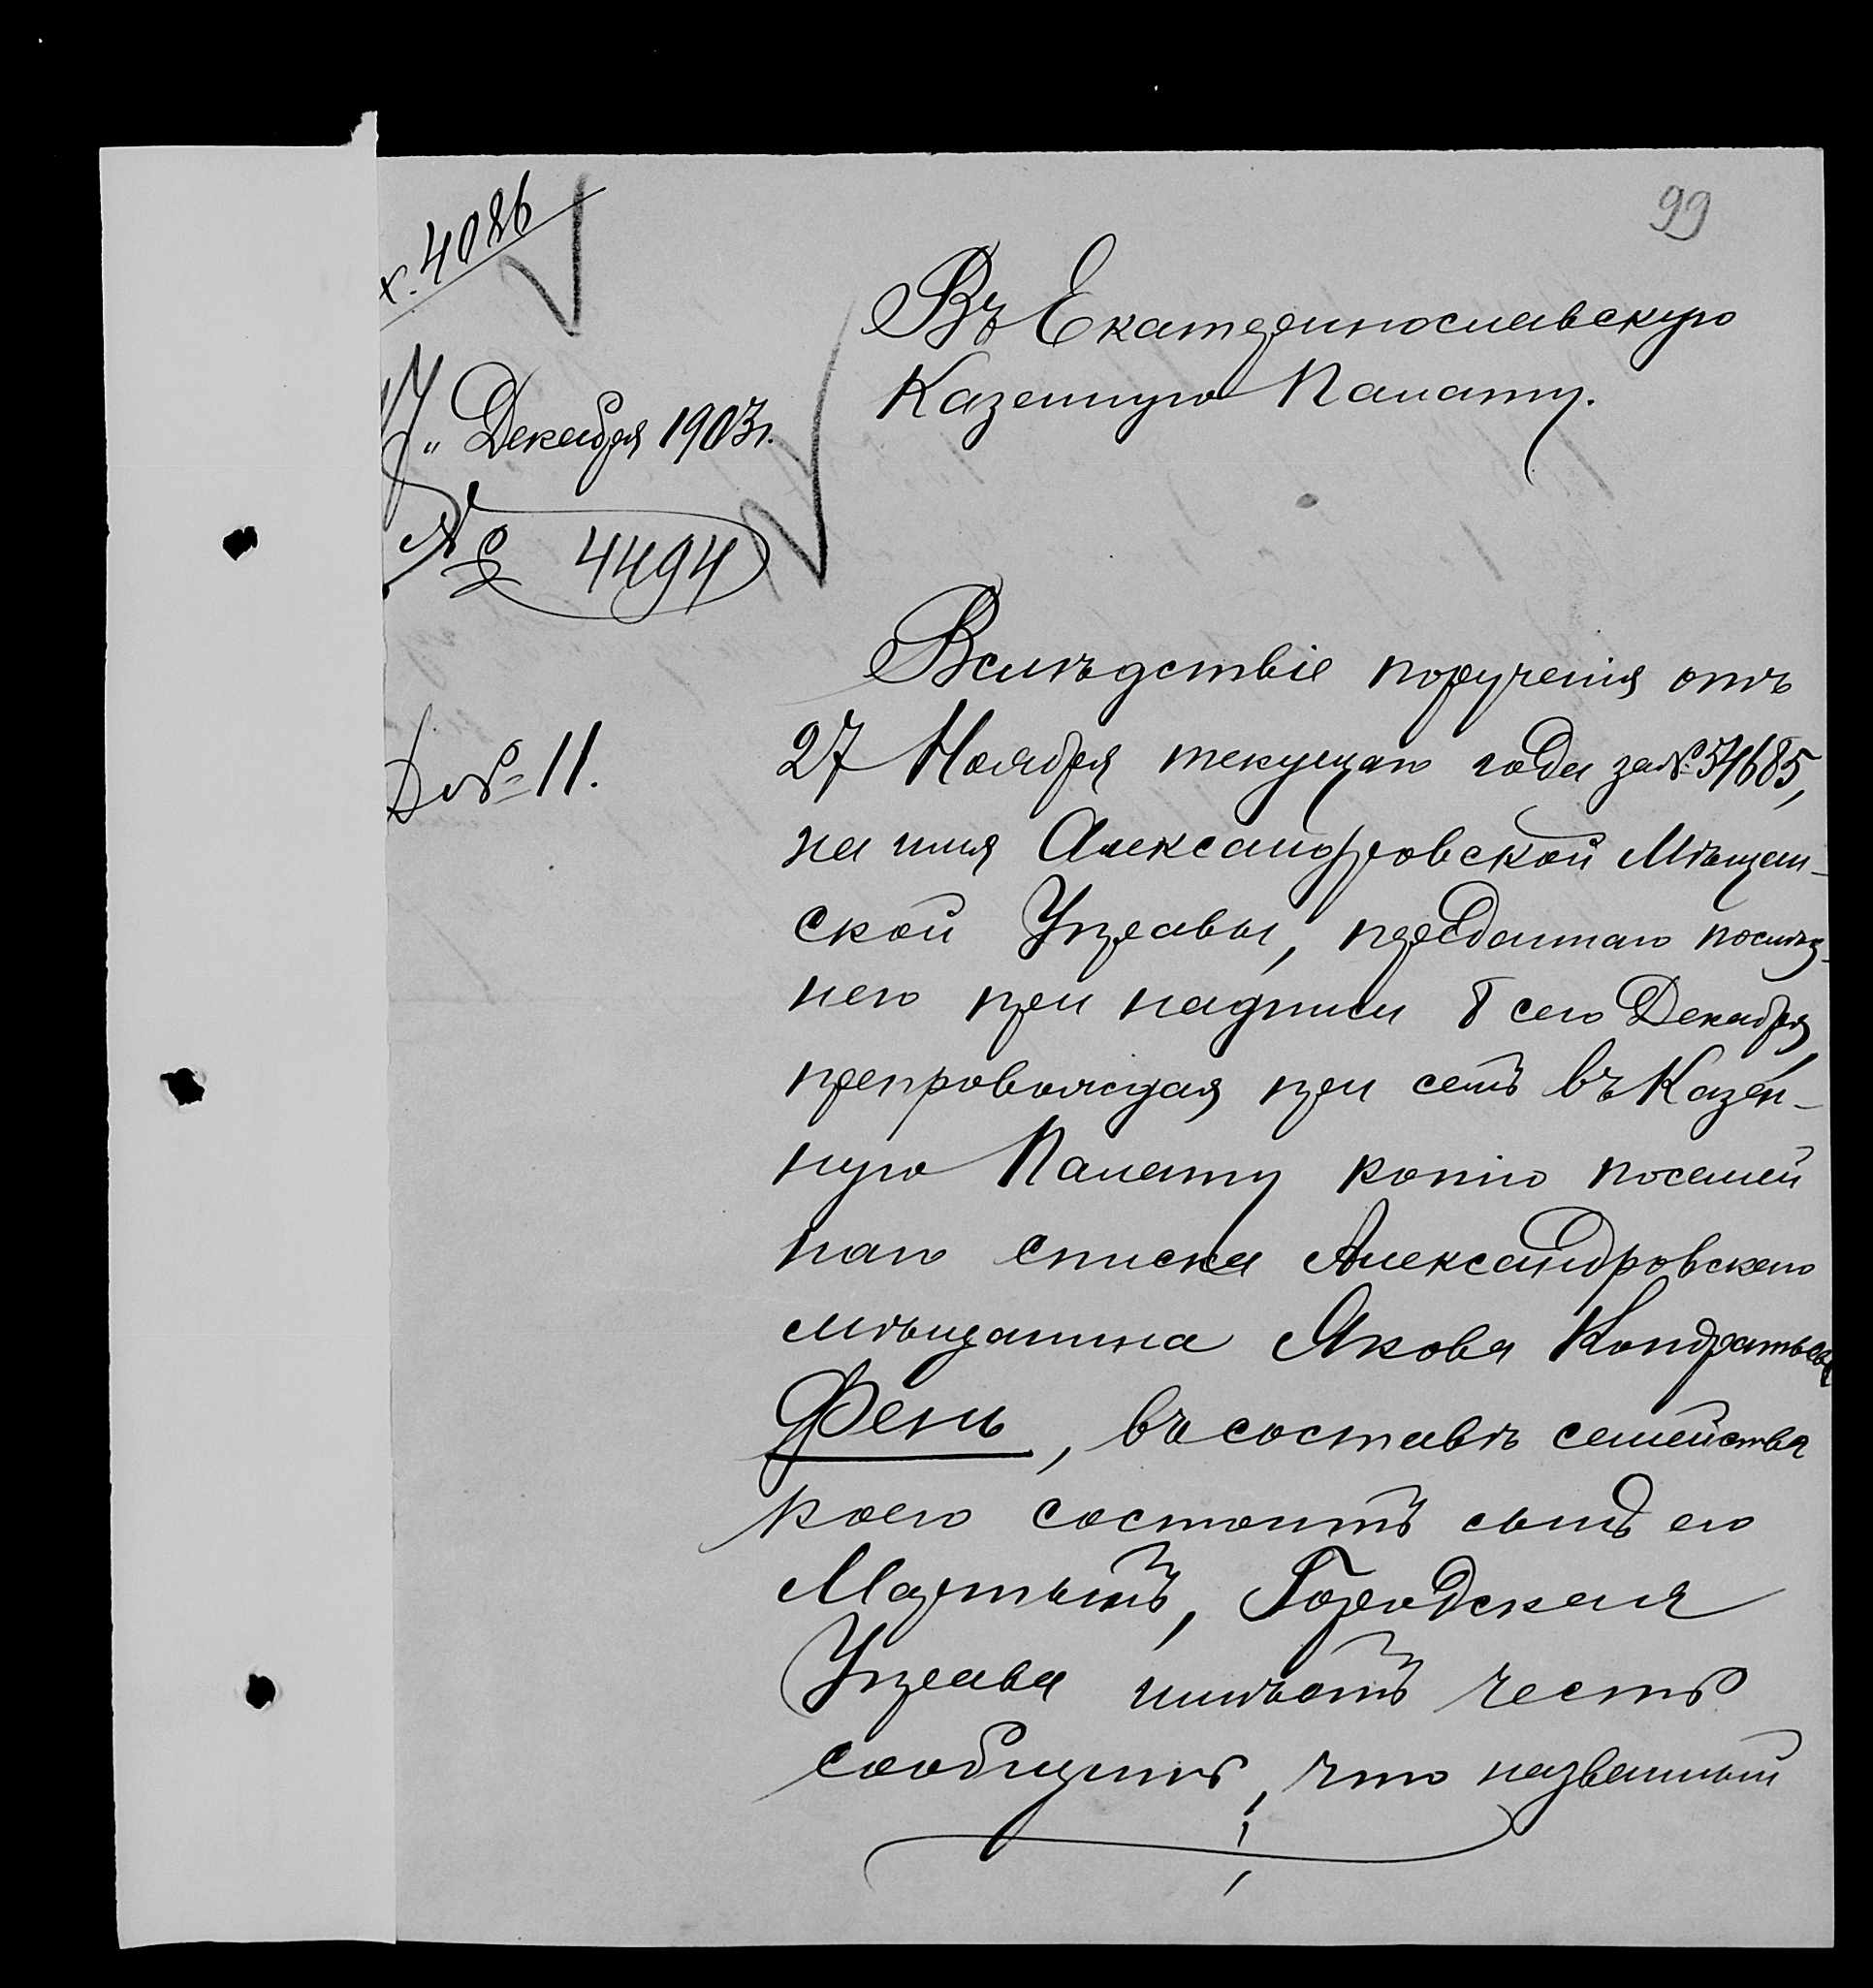 99
х. 4086
Въ Екатеринославскую
Казенную Палату.
17 „ Декабря 1903 г.
№ 4494
Вслѣдствіе порученія отъ
27 Ноября текущаго года за № 54685,
Д № 11.
на имя Александровской Мѣщан-
ской Управы, предданнаго послѣд-
нею при надписи 8 сего Декабря,
препровождая при семъ въ Казен-
ную Палату копію посемей
наго списка Александровскаго
мѣщанина Якова Кондратьева
Фень, въ составѣ семейства
коего состоитъ сынъ его
Мартынъ, Городская
Управа имѣетъ честь
сообщить, что названный